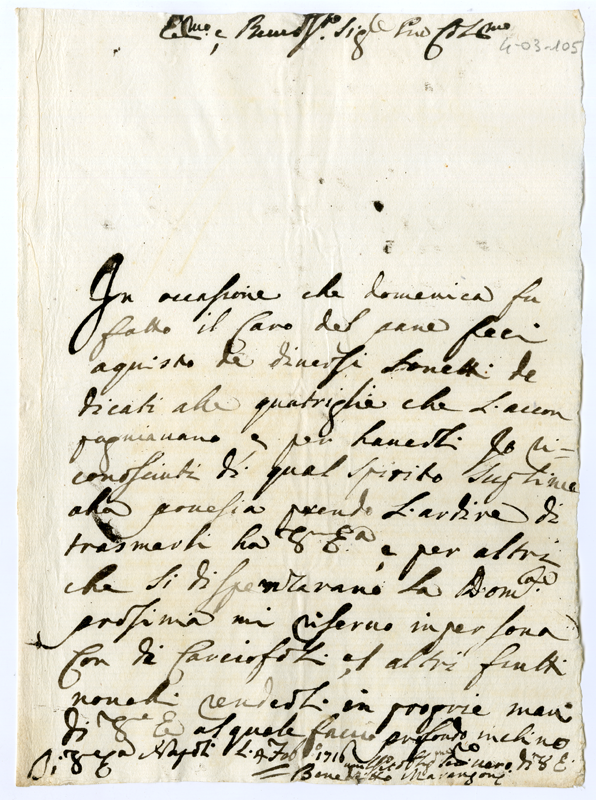 Ecc.mo e Rever.mo Sig.e Pne Col.mo
4-03-105
In occassione che domenica fu
fatto il Caro del pane feci
aquisto de diversi Sonetti de
dicati alle quatriglie che L'accon
pagniavano, e per haverli Io ri=
conosciuti di qual spirito suplime
alla pouesia prendo L'ardire di
trasmerli ha V. E.a, e per altri
che si dispenzarano La Dom.ca
prosima mi riserno in persona
Con di Carciofoli, et altri frutti
novelli renderli in proprie mani
di V. E. al quale faccio profondo inchino
Di V. E.za Napoli Li Feb.o 1716
di V. E.
Benedetto Marangoni